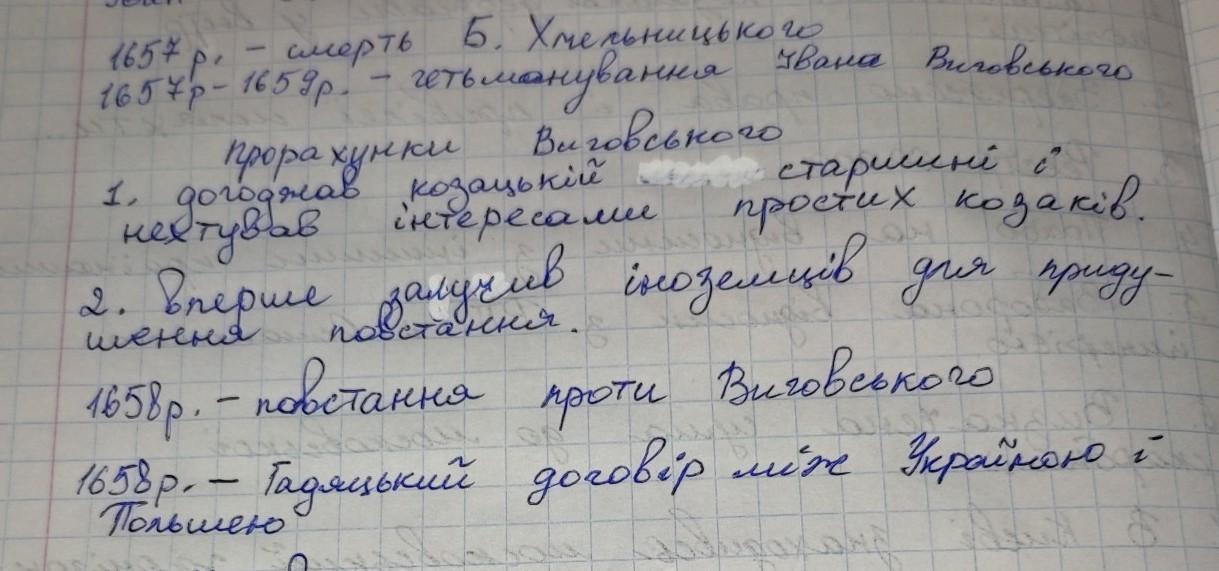 1657 р. – смерть Б. Хмельницького
1657р – 1659р. – гетьманування Івана Виговського
Прорахунки Виговського
1. догоджав козацькій старшині і
нехтував інтересами простих козаків.
2. Вперше залучив іноземців для приду-
шення повстання.
1658р. – повстання проти Виговського
1658р. – Гадяцький договір між Україною і
Польшею